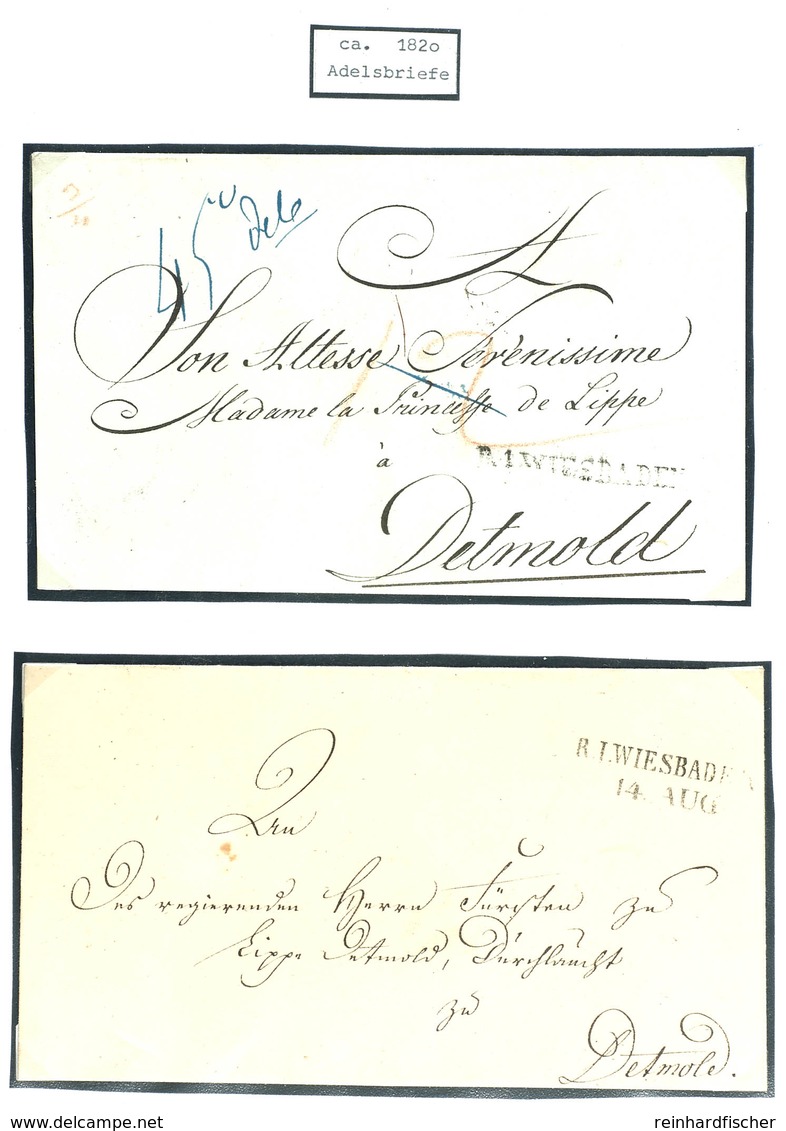 ca. 182o
Adelsbriefe
45
A
Son Altesse Serenissime
Madame la Princesse de Lippe
à
R.1.WIESBADEN
Detmold
R.I.WIESBADEN
14. AUG
An
Des regierenden Herrn Fürsten zu
Lippe Detmold, Durchlaucht
zu
Detmold.
reinhardfischer